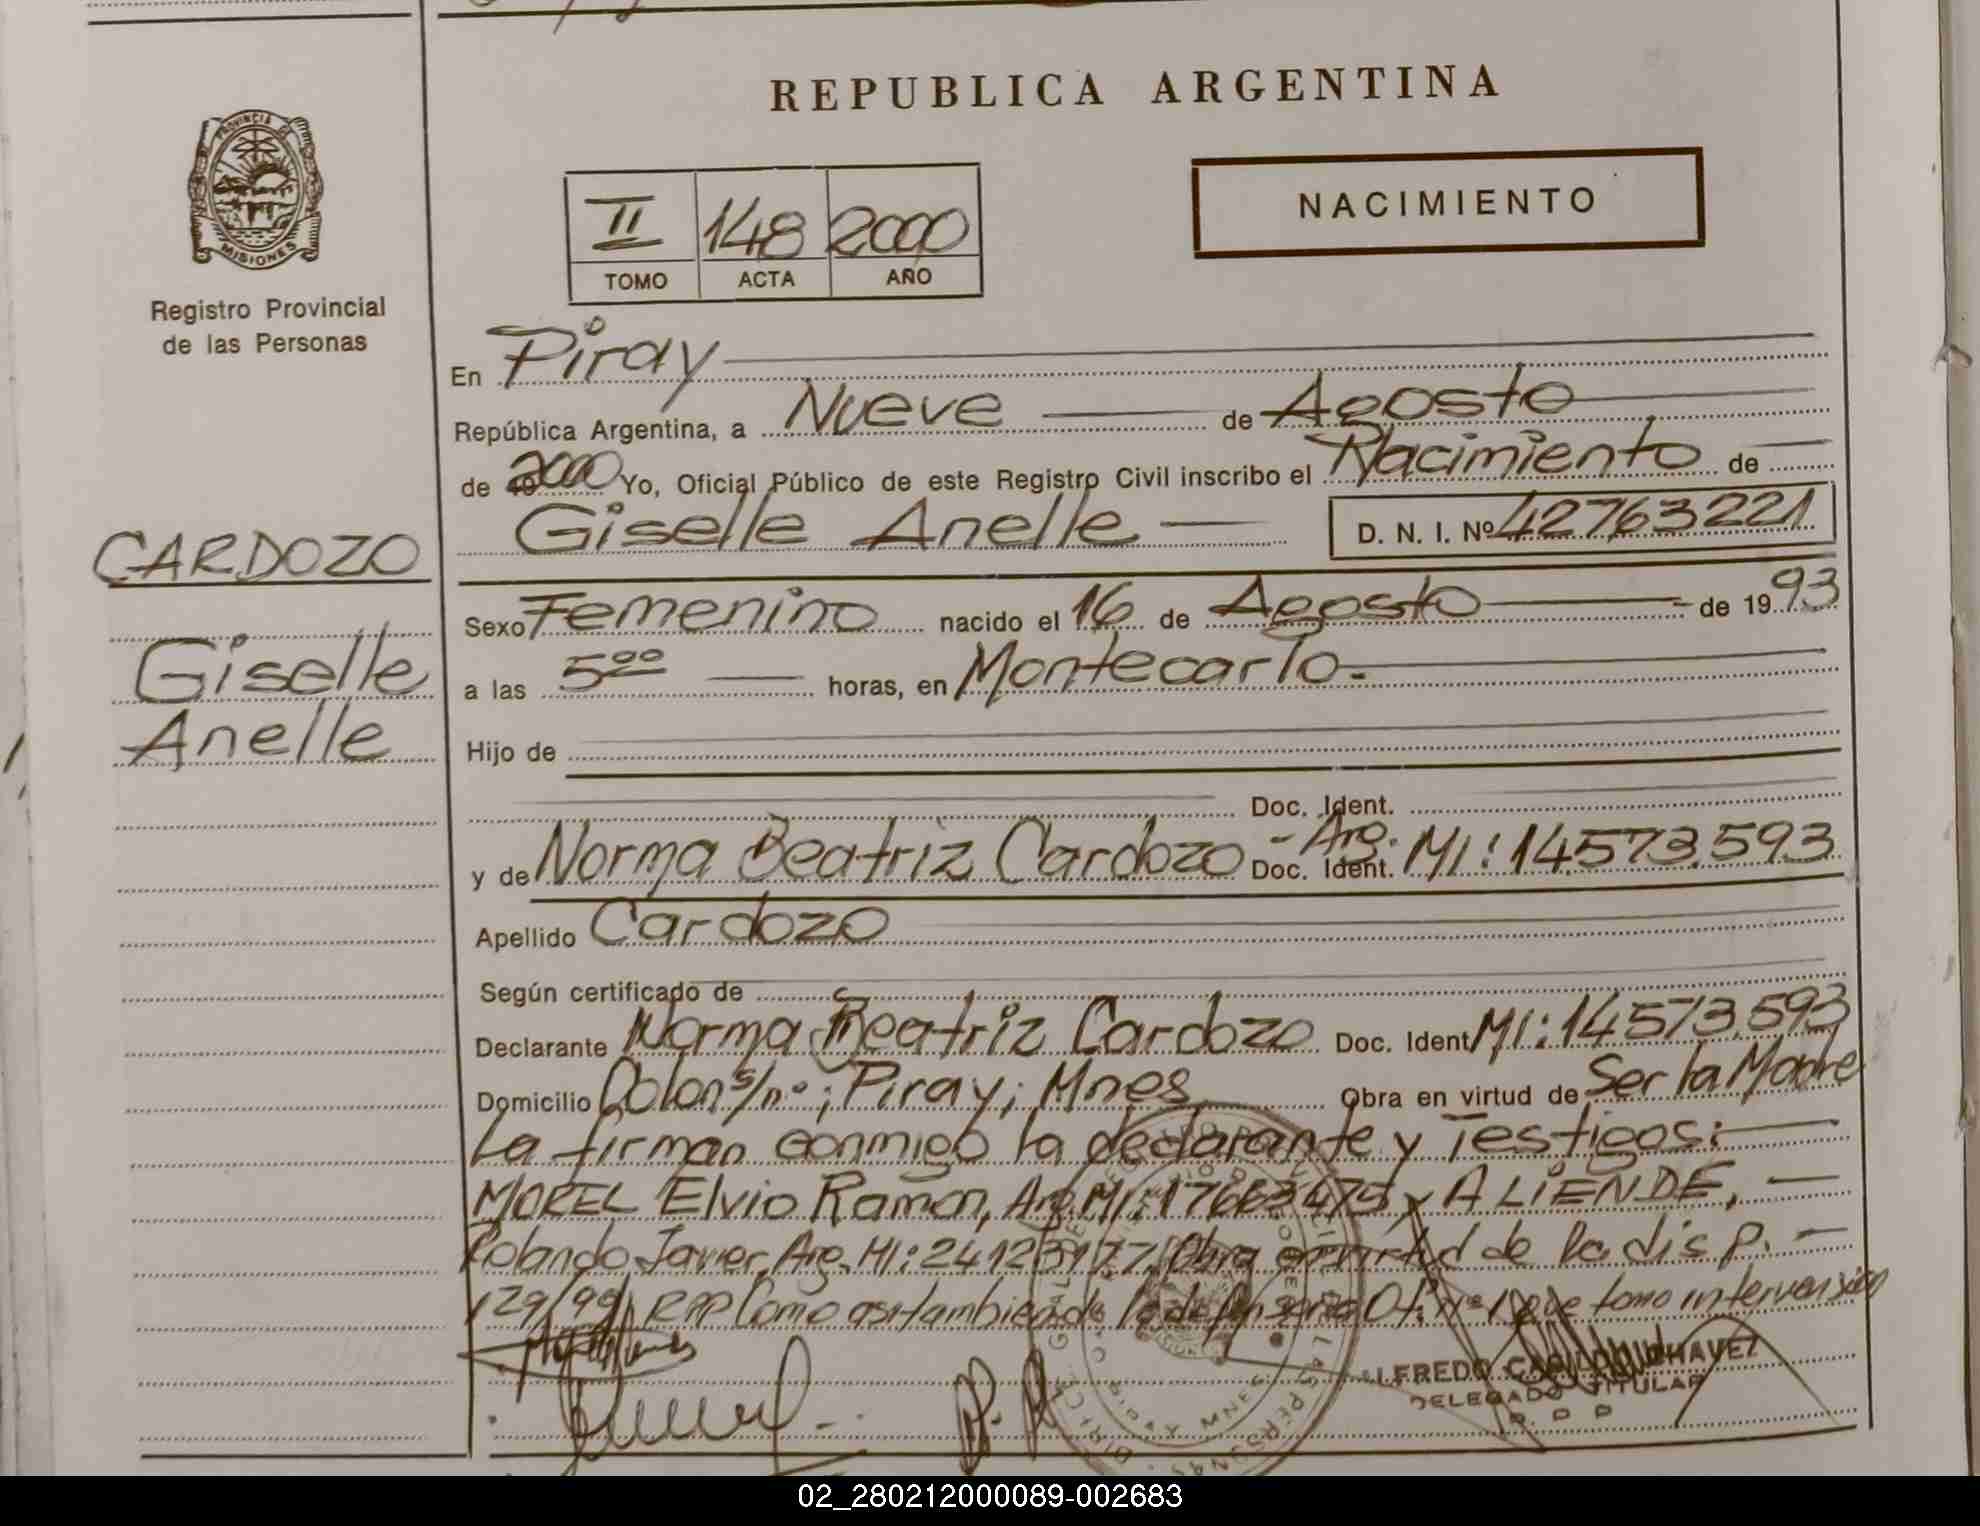 REPUBLICA ARGENTINA
PROVINCIA DE
MISIONES
Registro Provincial
de las Personas
NACIMIENTO
II 148 2000
TOMO ACTA AÑO
En Piray
República Argentina, a Nueve de Agosto
de 2000 Yo, Oficial Público de este Registro Civil inscribo el Nacimiento de
Giselle Anelle D. N. I. Nº 42763221
CARDOZO
Giselle
Anelle
Sexo Femenino nacido el 16 de Agosto de 1993
a las 500 horas, en Montecarlo.
Hijo de
Doc. Ident.
y de Norma Beatriz Cardozo - Arg. Doc. Ident. MI: 14.573.593
Apellido Cardozo
Según certificado de
Declarante Norma Beatriz Cardozo Doc. Ident MI: 14573.593
Domicilio Colon s/nº; Piray; Mnes Obra en virtud de Ser la Madre
La firman conmigo la declarante y Testigos:
MOREL Elvio Ramon, Arg. MI: 17663475 y ALIENDE,
Rolando Javier, Arg. MI: 24123177. Obra en virtud de la disp.
129/99 RPP Como asi tambien de la defenseria Of. nº 1 que tomo intervension
ALFREDO CHAVEZ
DELEGADO TITULAR
02_280212000089-002683